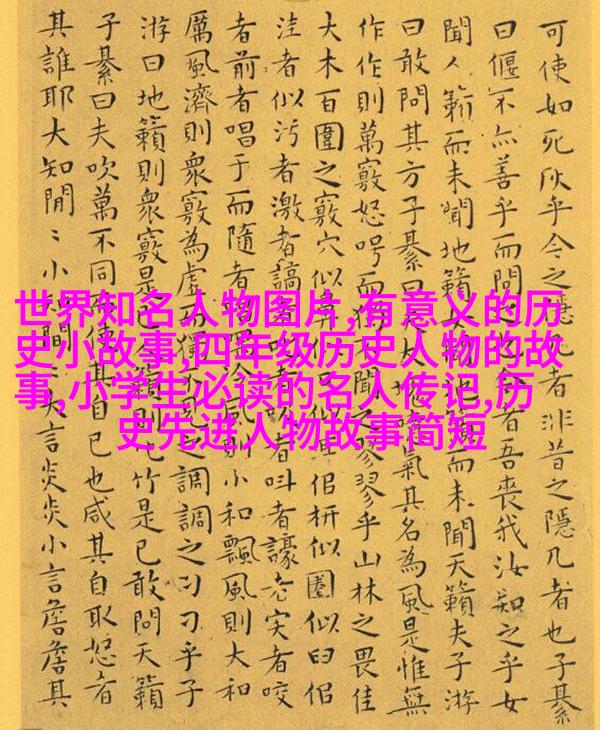 可使如死灰乎今之隱几者非昔之隱几者也子綦
曰偃不亦善乎而問之也者吾喪我汝知之乎女
聞人籟而未聞地籟籟而未聞天籟夫子游
曰敢問其方子綦曰大噫氣其名為風是惟無
作作則萬竅怒呺而聞之翏翏乎山林之畏佳
大木百圍之竅穴似佀枅似圈似臼佀
洼者似污者激者謞者者叫者譹者宎者咬
者前者唱于而隨者泠風則小和飄風則大和
厲風濟則衆竅為虛獨不見之調調之刁刁乎子
游曰地籟則衆竅是已比竹是已敢問天籟
子綦曰夫吹萬不同使其自已也咸其自取怒者
其誰耶大知閒〻小知閒〻大言炎炎小言詹詹其
世界知名人物图片,有意义的历
史小故事,四年级历史人物的故
事,小学生必读的名人传记,历
史先进人物故事简短